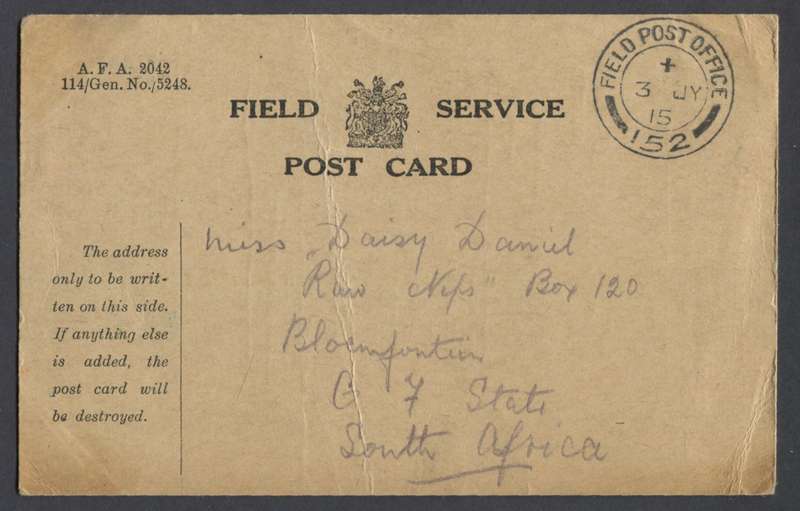 A. F. A. 2042
114/Gen. No./5248.
FIELD SERVICE
POST CARD
FIELD POST OFFICE
3 JY
15
152
The address
only to be writ-
ten on this side.
If anything else
is added, the
post card will
be destroyed.
Miss Daisy Daniel
"Box 120
Bloemfontein
O F State
South Africa